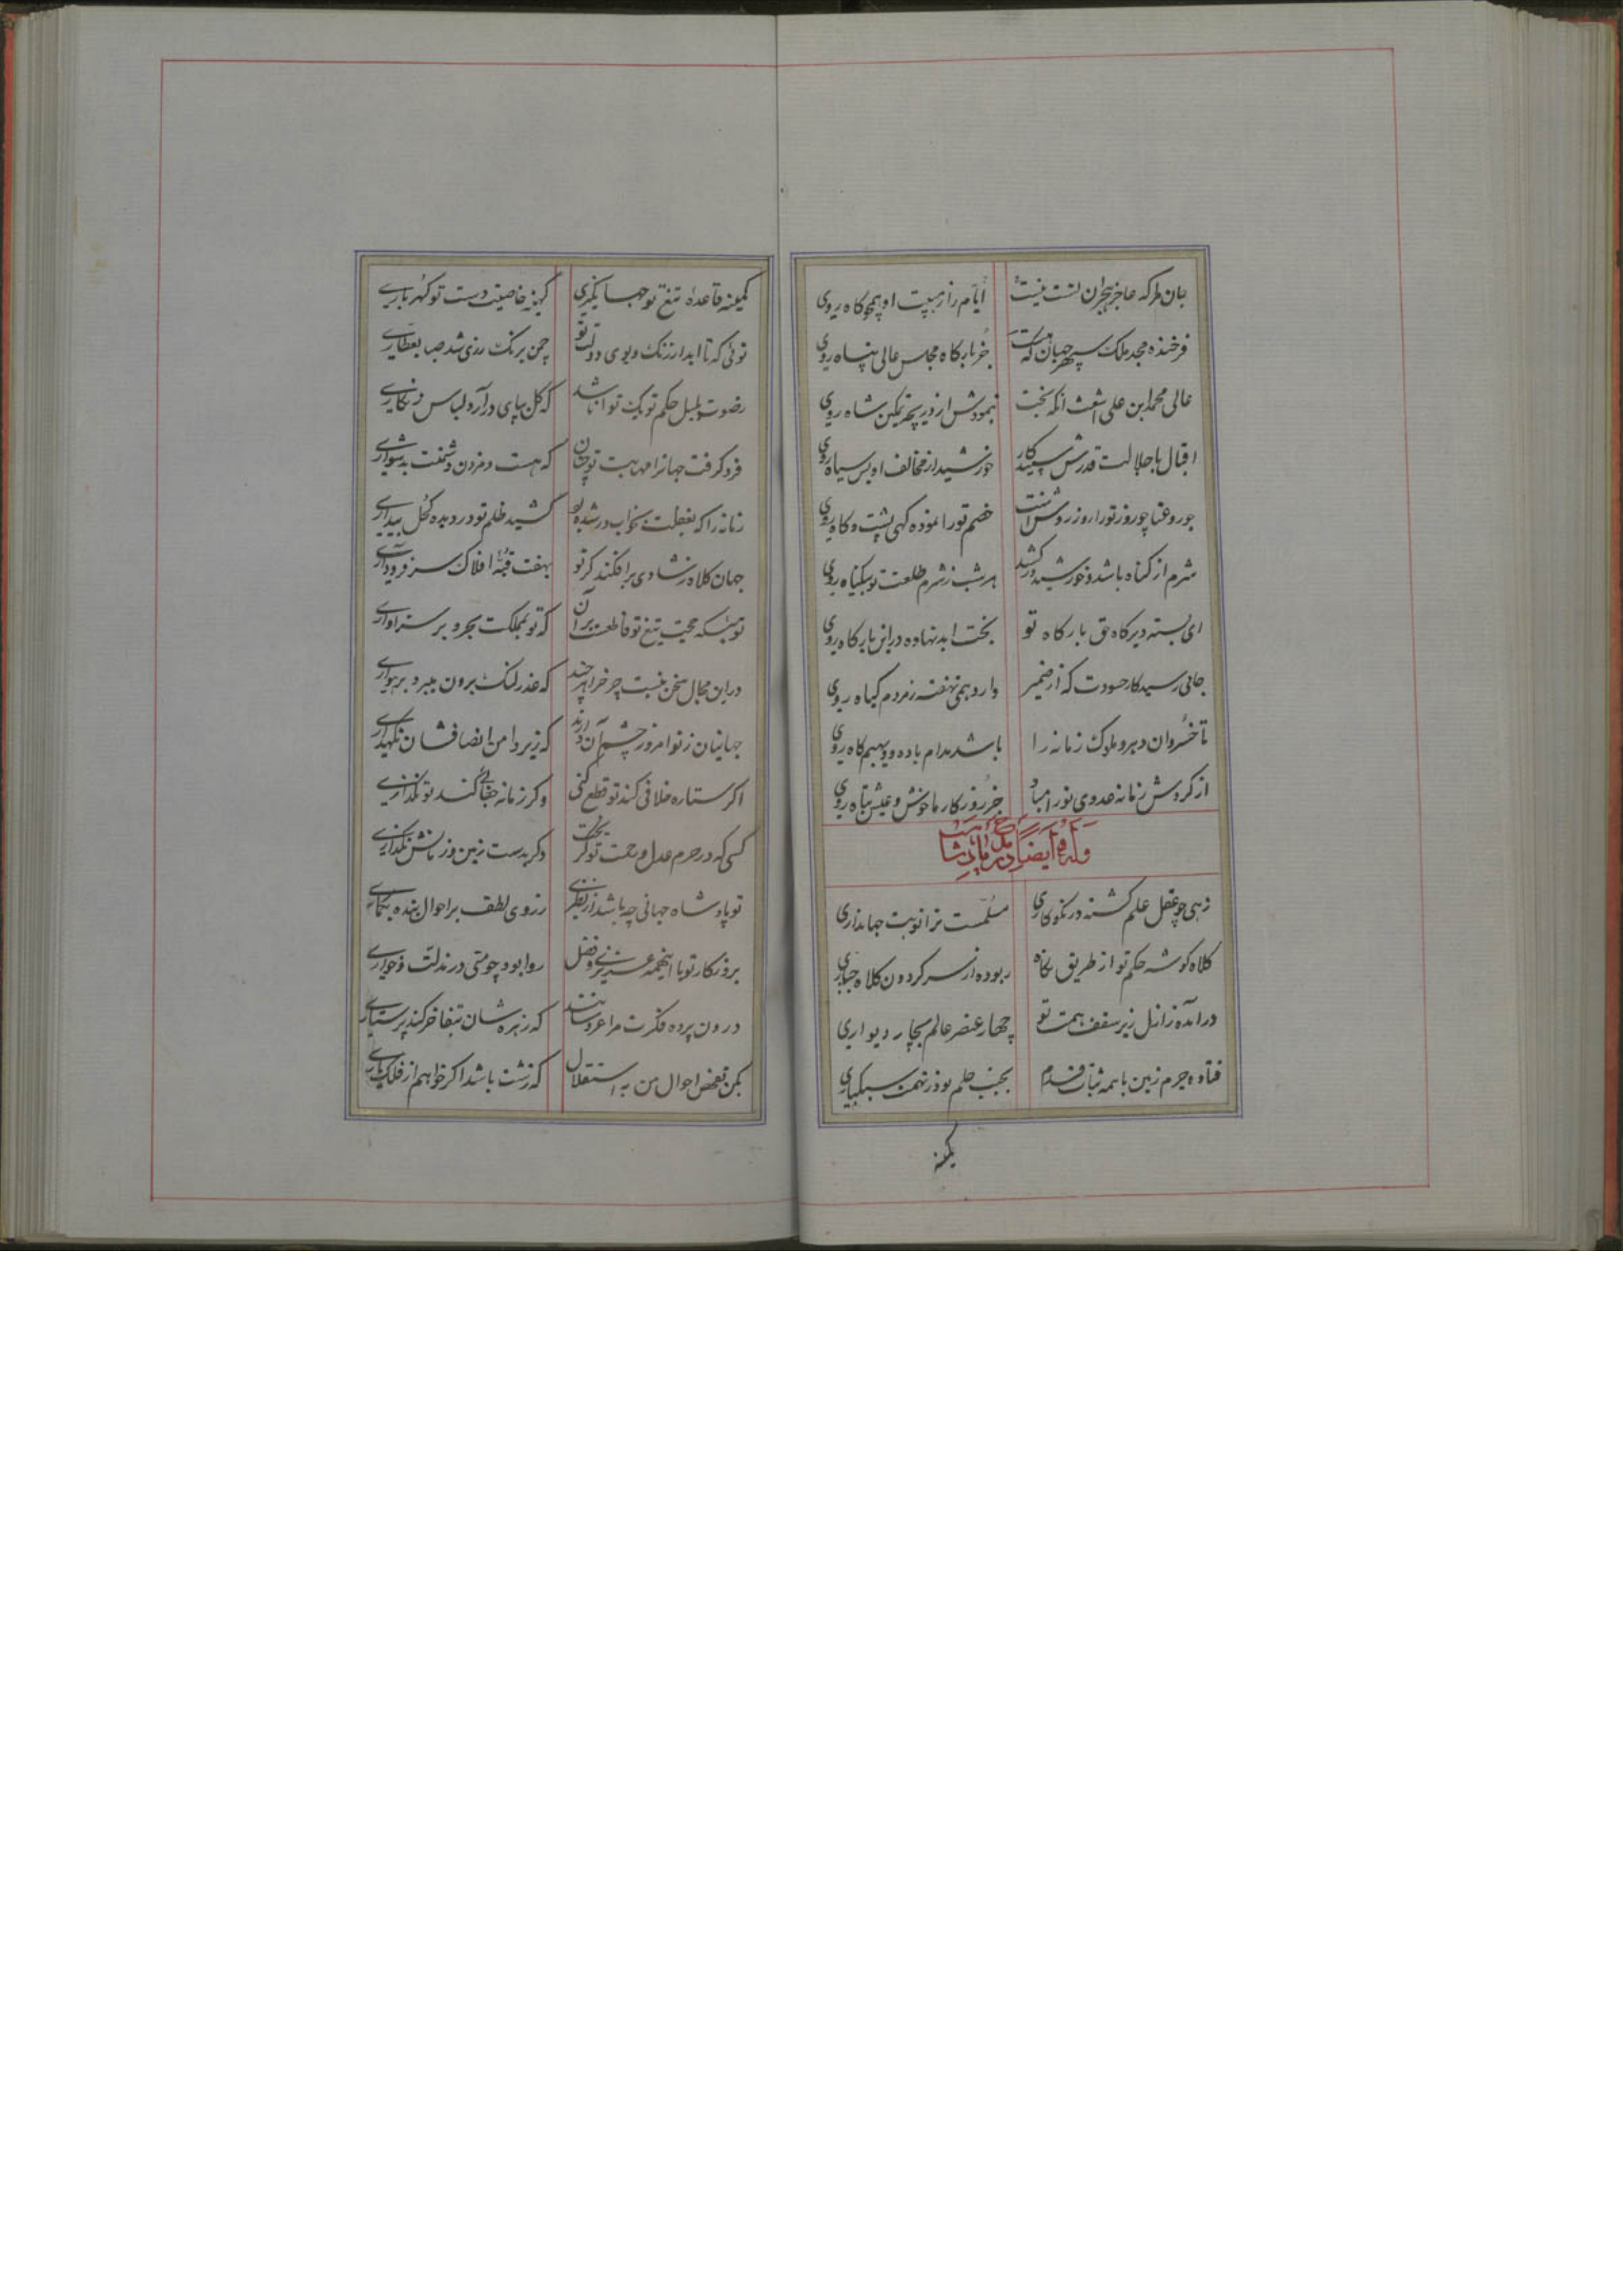 جان مرا که عاجز هجران تست نیست ایام را ز هیبت او همچو کاه روی
فرخنده مجد ملک سپهر جهان که جز بارگاه مجلس عالی پناه روی
عالی محمد ابن علی اشعث انکه بخت بنمودش از دریچه تمکین شاه روی
اقبال با جلالت قدرش سپید کار خورشید از مخالف او بس سیاه روی
جور و عنا چو روز تو را روز روشن است خصم تو را نموده کهی پشت و کاه روی
شرم از کناه باشد و خورشید در کشد هر شب ز شرم طلعت تو بیکناه روی
ای بسته دیر کاه حق بارکاه تو بخت ابد نهاده در این بارکاه روی
جائی رسید کار حسودت که از ضمیر دارد همی نهفته ز مردم کیاه روی
تا خسروان دهر و ملوک زمانه را باشد مدام باده و دیهیم کاه روی
از کردش زمانه عدوی تو را مباد جز روزکار ناخوش و عیش تباه روی
وله ایضا در مدح
زهی چو عقل علم کشته در نکوکاری مسلمست ترا نوبت جهانداری
کلاه کوشه حکم تو از طریق نفاذ ربوده از سر کردون کلاه جباری
درآمده ز ازل زیر سقف همت تو چهار عنصر عالم بچار دیواری
فتاده جرم زمین با همه ثبات قدم بجنب حلم تو در تهمت سبکباری
کمینه
کمینه قاعده تیغ تو جهانکیری کهینه خاصیت دست تو کهرباری
توئی که تا ابد از رنک و بوی دولت تو چمن برنک رزی شد صبا بعطاری
ز صوت طبل حکم تو یک توانا شد که کل بپای درآرد لباس زنکاری
فرو کرفت جهانرا مهابت تو چنان که هست دم زدن دشمنت بدشواری
زمانه را که بغفلت بخواب در شده بود کشید ظلم تو در دیده کحل بیداری
جهان کلاه ز شادی برافکند کر تو بهفت قبه افلاک سر فرود آری
توئی که حجت تیغ تو قاطعست بر آن که تو بمملکت بحر و بر سزاواری
در این مجال سخن نیست چرخ را هر چند که عذر لنک برون میبرد برهواری
جهانیان ز تو امروز چشم آن دارند که زیر دامن انصافشان نکهداری
اکر ستاره خلافی کند تو قطع کنی و کر زمانه جفائی کند تو نکذاری
کسی که در حرم عدل و رحمت تو کریخت دکر بدست زمین و زمانش نکذاری
تو پادشاه جهانی چه باشد از نظری ز روی لطف بر احوال بنده بکماری
بروزکار تو با اینهمه عزیزی و فضل روا بود چو منی در مذلت و خواری
درون پرده فکرت مرا عروسانند که زهره شان بتفاخر کند پرستاری
بکن تفحص احوال من به استقلال که زشت باشد اکر خواهم از فلک یاری